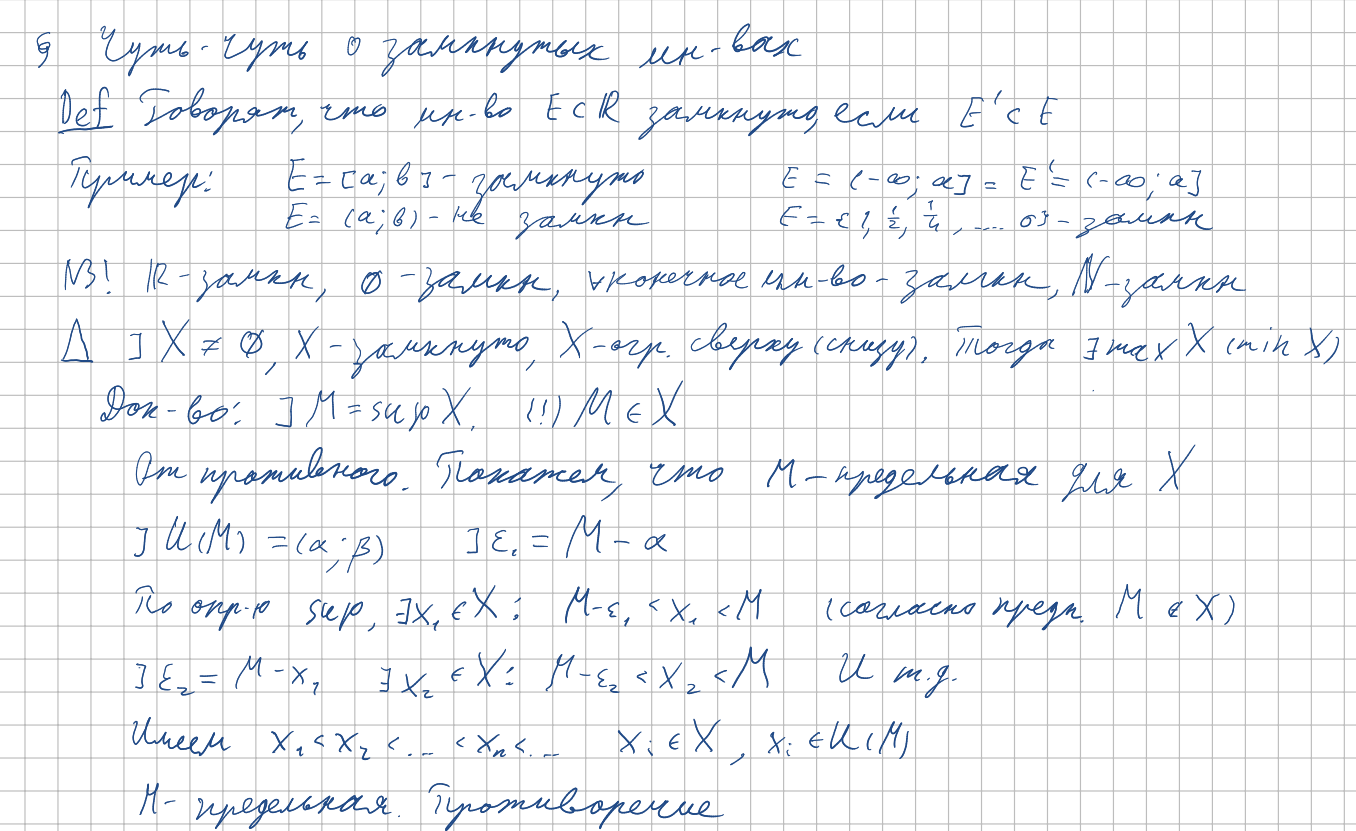 § Чуть-чуть о замкнутых мн-вах
Def Говорят, что мн-во E⊂ℝ замкнуто, если E'⊂E
Пример: E = [a; b] - замкнуто E = (-∞; a] = E' = (-∞; a]
E = (a; b) - не замкн E = {1, 1/2, 1/4, .... 0} - замкн
NB! ℝ - замкн, ∅ - замкн, ∀ конечное мн-во - замкн, ℕ - замкн
Δ ] X ≠ ∅, X - замкнуто, X - огр. сверху (снизу). Тогда ∃ max X (min X)
Док-во: ] M = sup X. (!) M ∈ X
От противного. Покажем, что M - предельная для X
] U(M) = (α; β) ] ε₁ = M - α
По опр-ю sup, ∃x₁ ∈ X: M-ε₁ < x₁ < M (согласно предп. M ∉ X)
] ε₂ = M - x₁ ∃ x₂ ∈ X: M-ε₂ < x₂ < M И т.д.
Имеем x₁ < x₂ < ... < xₙ < ... xᵢ ∈ X, xᵢ ∈ U(M)
M - предельная. Противоречие